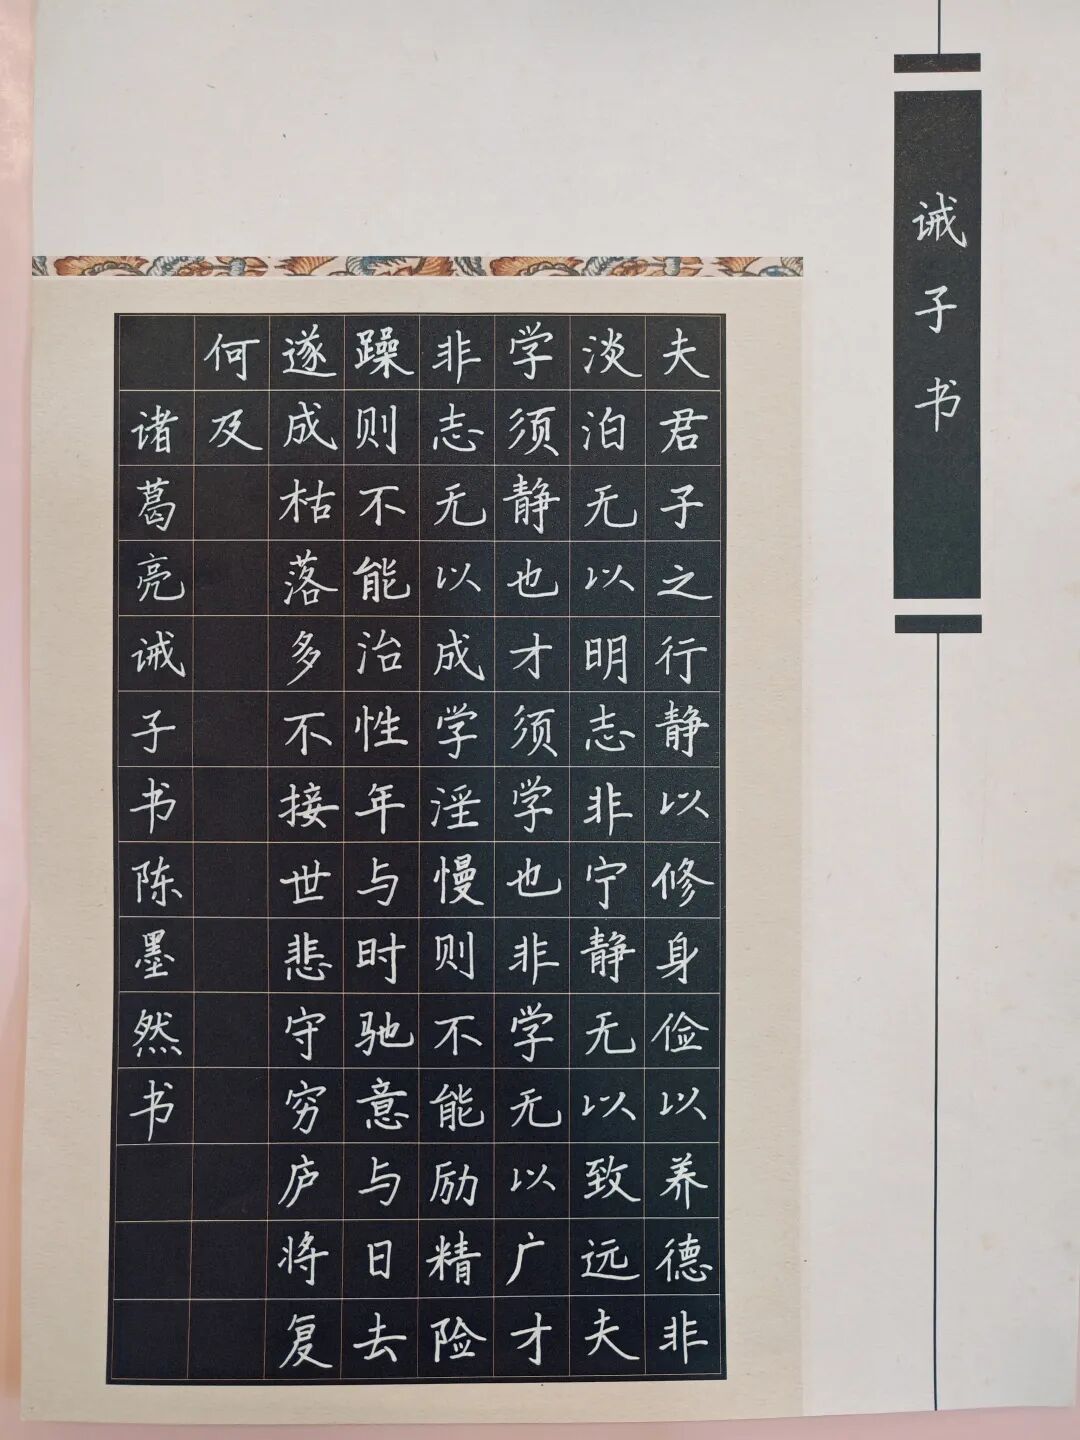 诫子书
夫君子之行静以修身俭以养德非
淡泊无以明志非宁静无以致远夫
学须静也才须学也非学无以广才
非志无以成学淫慢则不能励精险
躁则不能治性年与时驰意与日去
遂成枯落多不接世悲守穷庐将复
何及
诸葛亮诫子书陈墨然书